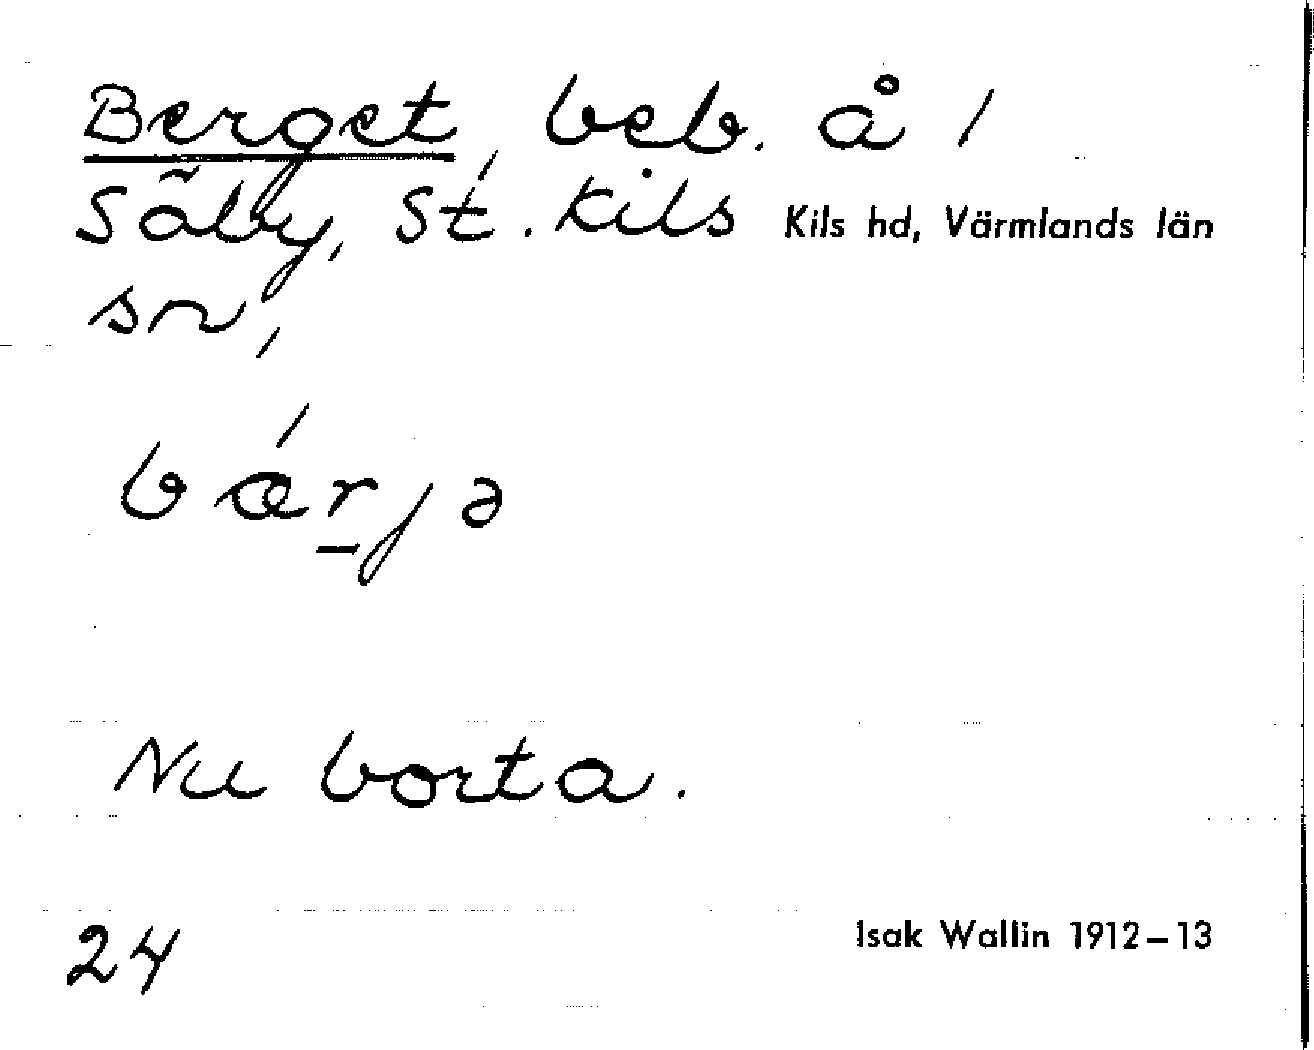 Berget, beb. å /
Säby, St. Kils Kils hd, Värmlands län
sn,
bǽr̲jə
Nu borta.
24 Isak Wallin 1912–13